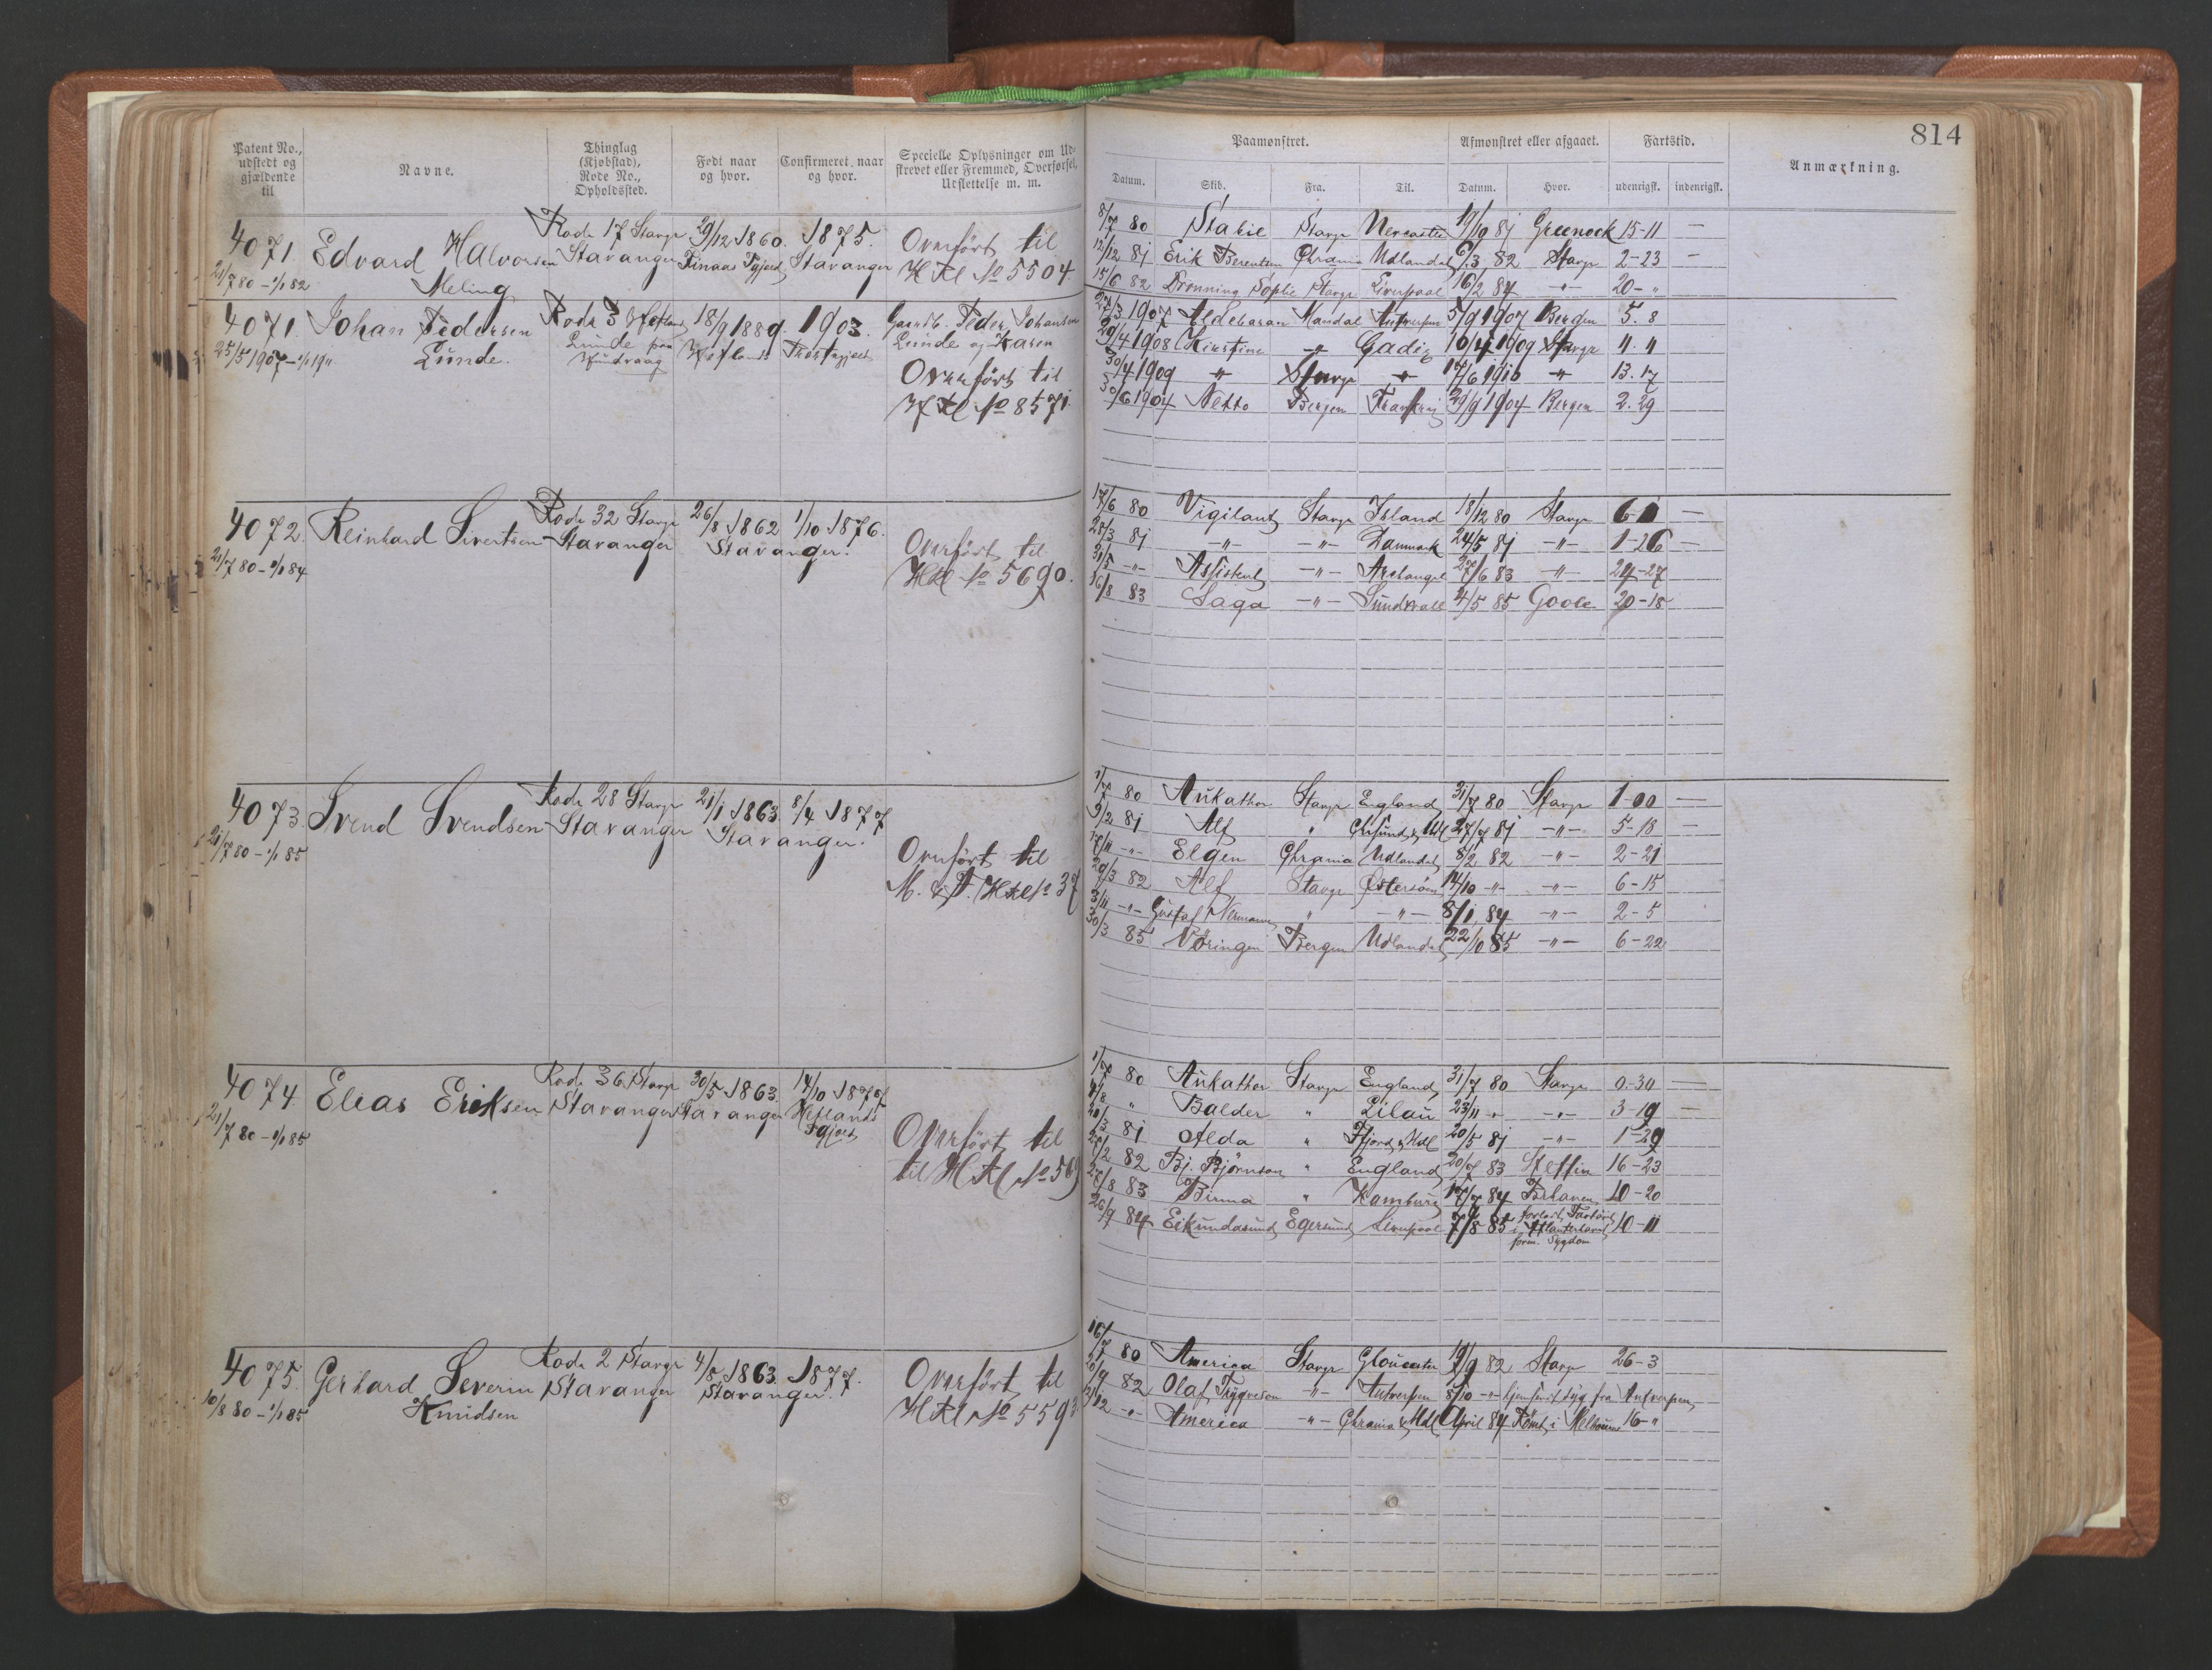 814
Patent No., udstedt og gjældende til
Navne.
Thinglag (Kjøbstad), Rode No., Opholdssted.
Født naar og hvor.
Confirmeret, naar og hvor.
Specielle Oplysninger om Udskrevet eller Fremmed, Overførsel, Udslettelse m. m.
Paamønstret.
Afmønstret eller afgaaet.
Fartstid.
Anmærkning.
Datum. Skib. Fra. Til. Datum. Hvor. udenrigsk. indenrigsk.
4071. Edvard Halvorsen Meling
21/7 80 - 1/1 82
Rode 17 Stavgr Stavanger
29/12 1860.
1875. Stavanger
Overført til HKl No 5504.
8/7 80 Stavgr 19/9 81 Greenock 15-11 —
12/12 81 Erik Berentsen Chrania Udlandet 6/3 82 Stavgr 2-23 —
15/6 82 Dronning Sophie Stavgr Liverpool 16/2 84 -"- 20-"
4071. Johan Pedersen Lunde.
25/5 1907 - 1/1 1911
Rode 3 Hetland Lunde paa
18/9 1889. Hetland
1903.
Gaardb. Peder Johansen Lunde og Karen
Overført til HKl No 8571.
27/3 1907 Aldebaran Mandal Antwerpen 5/9 1907 Bergen 5. 8
29/4 1908 Kirstine -"- Cadiz 10/4 1909 Stavgr 11. 11
30/4 1909 " Stavgr " 17/6 1910 " 13. 17
30/6 1904 Netto Bergen Frankrig 29/9 1904 Bergen 2. 29
4072. Reinhard Sivertsen
21/7 80 - 1/1 84
Rode 32 Stavgr Stavanger
26/8 1862 1/10 1876.
Stavanger.
Overført til HKl No 5690.
17/6 80 Vigilant Stavgr Island 18/12 80 Stavgr —
28/3 81 -"- -"- Danmark 24/5 81 -"- 1-26 —
31/5 -"- Assistent -"- Archangel 27/6 83 -"- 24-27
16/8 83 Saga -"- Sundsvall 4/5 85 Goole 20-18
4073. Svend Svendsen
21/7 80 - 1/1 85
Rode 28 Stavgr Stavanger
21/1 1863. 8/4 1877
Stavanger.
Overført til M. & F. HKl No 37
1/7 80 Aukathor Stavgr England 31/7 80 Stavgr 1-00 —
9/2 81 Alf " Chrsund & Udl 27/7 81 -"- 5-18 —
17/11 -"- Elgen Chrania Udlandet 8/2 82 -"- 2-21
29/3 82 Alf Stavgr Østersøen 14/10 -"- -"- 6-15
3/11 -"- Gustaf " -"- 8/1 84 -"- 2-5
30/3 85 Vøringen Bergen Udlandet 22/10 85 -"- 6-22
4074 Elias Eriksen
21/7 80 - 1/1 85
Rode 36 Stavgr Stavanger
30/5 1863. Stavanger
14/10 1878 Hetlands Pgjæld
Overført til til HKl No 569
1/7 80 Aukathor Stavgr England 31/7 80 Stavgr 0.30 —
4/8 " Balder " Libau 23/11 -"- -"- 3-19 —
20/3 81 Alda " Fjord & Udl 20/5 81 -"- 1-29
28/2 82 Bj. Bjørnson " England 20/7 83 Stettin 16-23
27/8 83 Birma " Hamburg 17/7 84 10-20
26/9 84 Eikundasund Egersund Liverpool 7/8 85 forlod Fartøiet i Atlanterhavet form. Sygdom 10-11
4075. Gerhard Severin Knudsen
10/8 80 - 1/1 85
Rode 2 Stavgr Stavanger
4/8 1863. 1877.
Stavanger.
Overført til HKl No 5593
16/7 80 America Stavgr Gloucester 19/9 82 Stavgr 26-3
20/9 82 Olaf Trygveson -"- Antverpen 8/10 -"- hjemsendt syg fra Antverpen
12/12 -"- America -"- Chrania & Udl April 84 Rømt i Melbourne 16-"